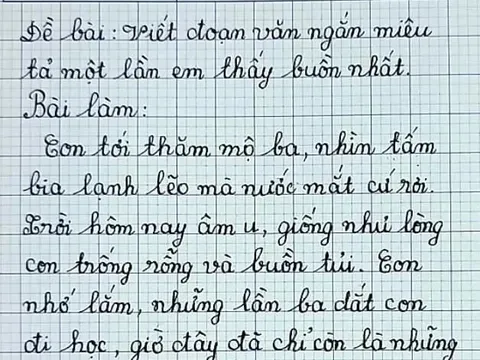 Đề bài: Viết đoạn văn ngắn miêu
tả một lần em thấy buồn nhất.
Bài làm:
Con tới thăm mộ ba, nhìn tấm
bia lạnh lẽo mà nước mắt cứ rơi.
Trời hôm nay âm u, giống như lòng
con trống rỗng và buồn tủi. Con
nhớ lắm, những lần ba dắt con
đi học, giờ đây đã chỉ còn là những